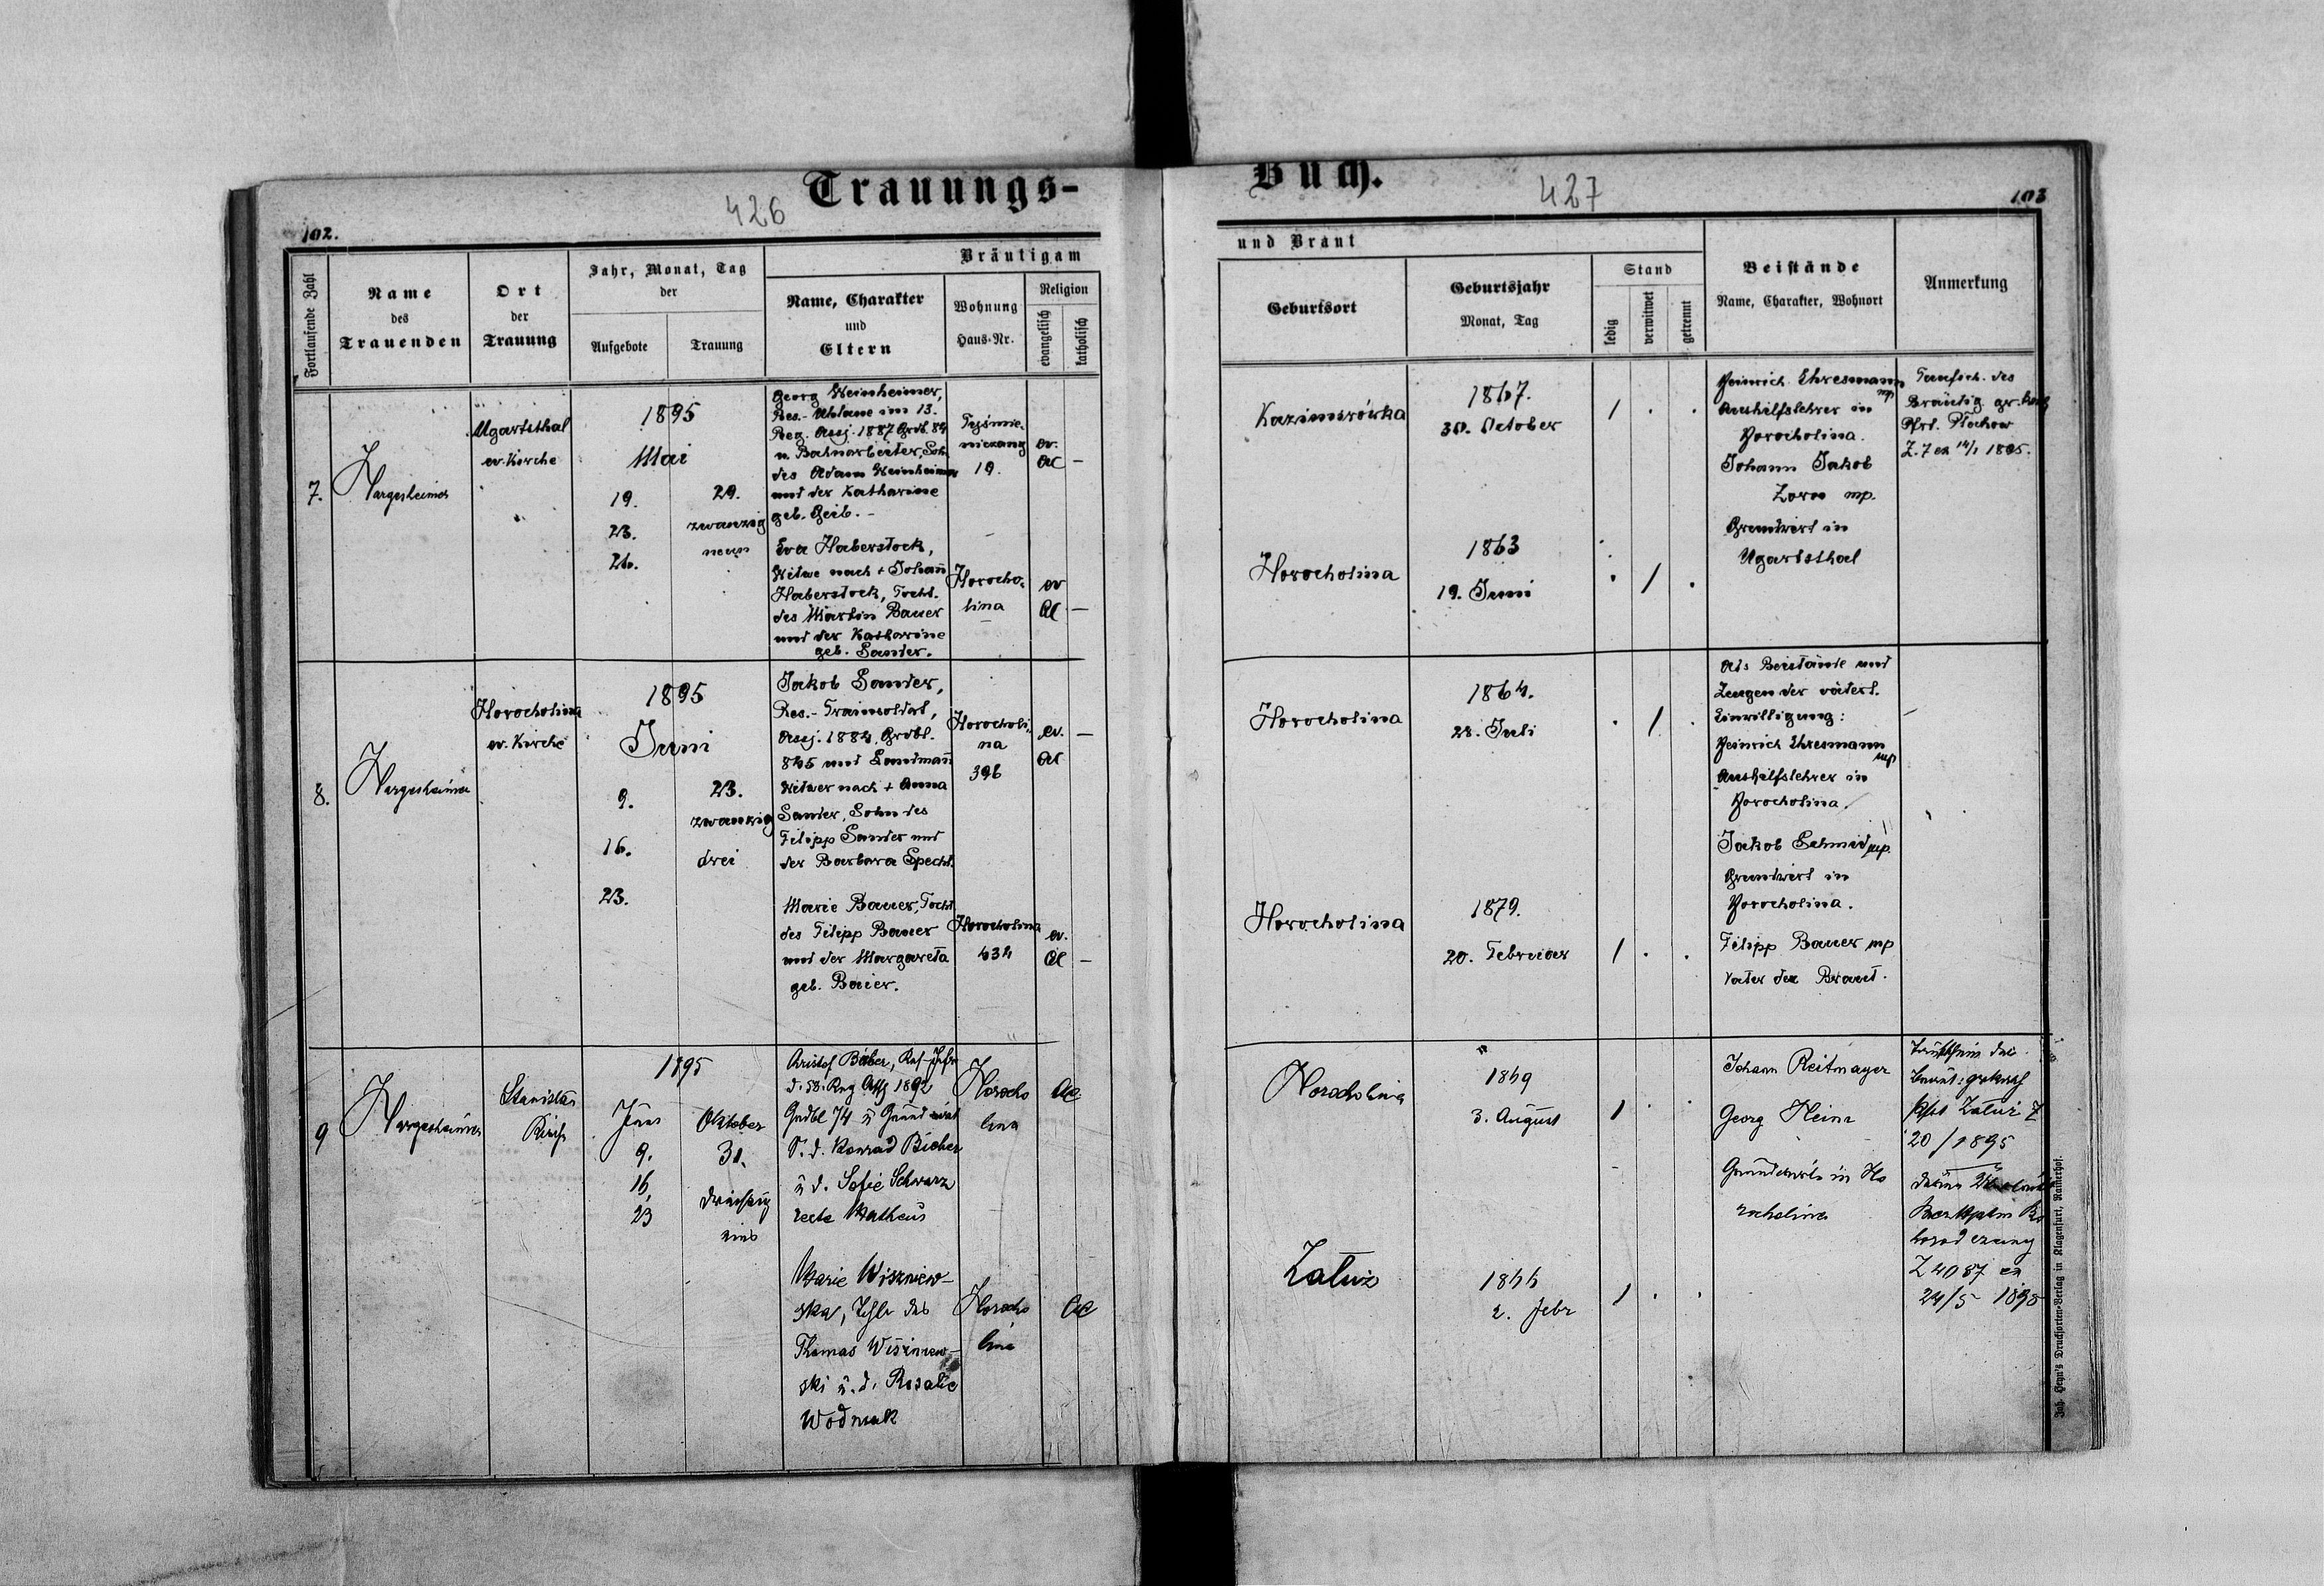 426
Trauungs-
102.
Fortlaufende Zahl
Name
des
Trauenden
Ort
der
Trauung
Jahr, Monat, Tag
der
Aufgebote
Trauung
Bräutigam
Name, Charakter
und
Eltern
Wohnung
Haus-Nr.
Religion
evangelisch
katholisch
7.
Hargesheimer
Ugartsthal
ev. Kirche
1895
Mai
19.
23.
26.
29.
zwanzig
neun
Georg Weinheimer,
Res.- Uhlane im 13.
Reg. Assj. 1887 Grdb. 84
u. Bahnarbeiter, Sohn
des Adam Weinheimer
und der Katharine
geb. Geib. -
Tyśmie-
niczany
19.
ev.
AC
-
Eva Haberstock,
Witwe nach + Johann
Haberstock, Tocht.
des Martin Bauer
und der Katharine
geb. Sander.
Horocho-
lina
ev
AC
-
8.
Hargesheimer
Horocholina
ev. Kirche
1895
Juni
9.
16.
23.
23.
zwanzig
drei
Jakob Sander,
Res.- Trainsoldat,
Assj. 1884, Grdbl.
845 und Landmann
Witwer nach + Anna
Sander, Sohn des
Filipp Sander und
der Barbara Specht.
Horocholi-
na
396
ev.
AC
-
Marie Bauer, Tocht
des Filipp Bauer
und der Margareta
geb. Baier.
Horocholina
434
ev.
AC
-
9
Hargesheimer
Stanislau
Kirche
1895
Juni
9.
16,
23
Oktober
31.
dreissig
eins
Kristof Bieber, Res-Inftr
d. 58. Rng Assj 1892
Grdbl 74 u Grundwirt
S. d. Konrad Bieber
u d. Sofie Schwarz
recte Matheus
Horocho
lina
AC
Marie Wiszniew-
ska, Tchtr des
Thomas Wiszniew-
ski u. d. Rosalie
Wodniak
Horocho
lina
AC
Buch.
427
103
und Braut
Geburtsort
Geburtsjahr
Monat, Tag
Stand
ledig
verwitwet
getrennt
Beistände
Name, Charakter, Wohnort
Anmerkung
Kazimirówka
1867.
30. October
/ . .
Heinrich Ehresmann
mp
Aushilfslehrer in
Horocholina.
Johann Jakob
Zorn mp.
Grundwirt in
Ugartsthal
Taufsch. des
Bräutig. gr. kath
Pfrt. Płochow
Z. 7 ex 14/1 1895.
Horocholina
1863
19. Juni
. / .
Horocholina
1864.
28. Juli
. / .
Als Beistände und
Zeugen der väterl.
Einwilligung:
Heinrich Ehresmann
mp
Aushilfslehrer in
Horocholina.
Jakob Schmid mp.
Grundwirt in
Horocholina.
Filipp Bauer mp
Vater der Braut.
Horocholina
1879.
20. Februar
/ . .
Horocholina
1869
3. August
/ . .
Johann Reitmayer
Georg Hein
Grundwirte in Ho
rocholina
Taufschein der
Braut: gr kath
Pfrt Zatuż Z
20/1895
Z 4087 ex
24/5 1895
Zatuż
1866
2. Febr
/ . .
Joh. Heyn's Drucksorten-Verlag in Klagenfurt, Rainerhof.